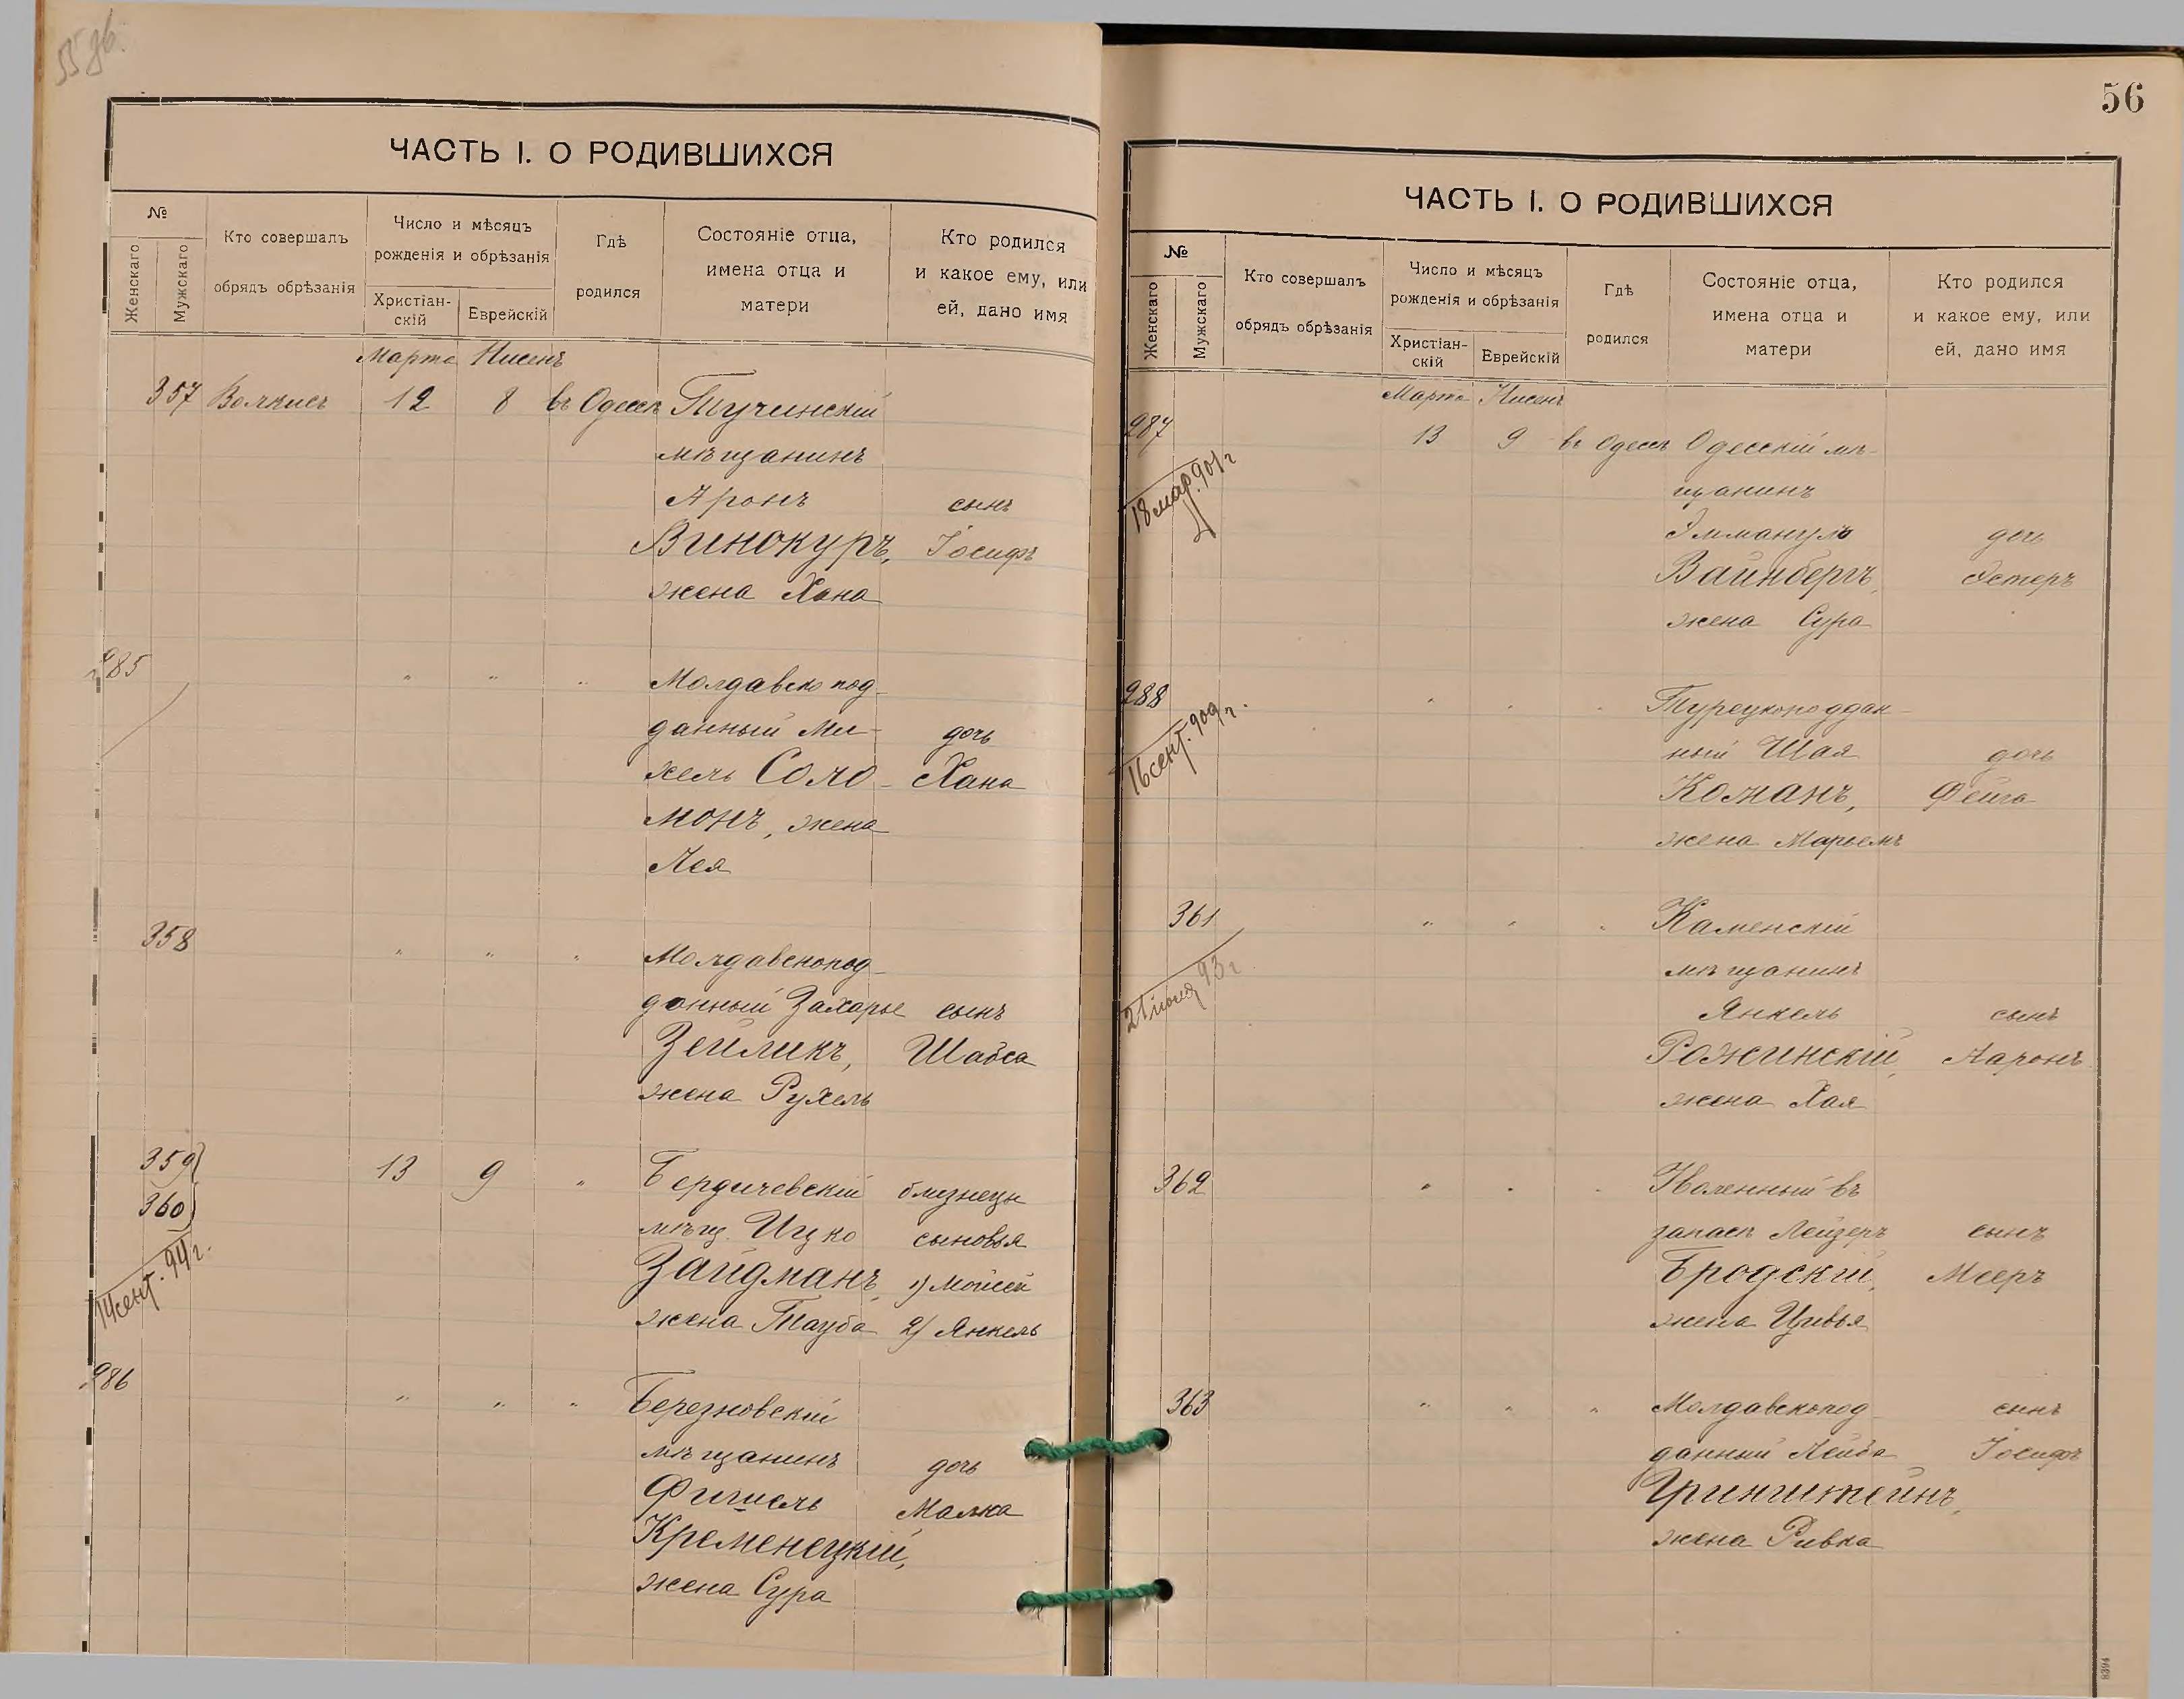 ЧАСТЬ I. О РОДИВШИХСЯ
№
Женскаго
Мужскаго
Кто совершалъ
обрядъ обрѣзанія
Число и мѣсяцъ
рожденія и обрѣзанія
Христіан-
скій
Еврейскій
Гдѣ
родился
Состояніе отца,
имена отца и
матери
Кто родился
и какое ему, или
ей, дано имя
Марта Нисенъ
357 12 8 въ Одессѣ Тучинскій
мѣщанинъ
Аронъ сынъ
Винокуръ, Іосифъ
жена Хана
285 " " " Молдавскопод-
данный Ми- дочь
хель Соло- Хана
монъ, жена
Лея
358 " " " Молдавскопод-
данный Захарье сынъ
Зейликъ, Шабса
жена Рухель
359 13 9 " Бердичевскій близнецы
360 мѣщ. Ицко сыновья
14 сент. 94 г. Зайдманъ, 1) Мойсей
жена Тауба 2) Янкель
286 " " " Березновскій
мѣщанинъ дочь
Фишель Малка
Кременецкій,
жена Сура
56
ЧАСТЬ I. О РОДИВШИХСЯ
№
Женскаго
Мужскаго
Кто совершалъ
обрядъ обрѣзанія
Число и мѣсяцъ
рожденія и обрѣзанія
Христіан-
скій
Еврейскій
Гдѣ
родился
Состояніе отца,
имена отца и
матери
Кто родился
и какое ему, или
ей, дано имя
Марта Нисенъ
287 13 9 въ Одессѣ Одесскій мѣ-
18 мар. 901 г щанинъ
дочь
Вайнбергъ, Эстеръ
жена Сура
288 " " " Турецкоподдан-
16 сент. 909 г. ный Шая дочь
Кожанъ, Фейга
жена Марьемъ
361 " " " Каменскій
мѣщанинъ
Янкель сынъ
Рожинскій, Ааронъ
жена Хая
362 " " " Уволенный въ
запасъ Лейзеръ сынъ
Бродскій, Мееръ
жена Цивья
363 " " " Молдавскопод- сынъ
данный Лейба Іосифъ
Гринштейнъ,
жена Ривка
8394